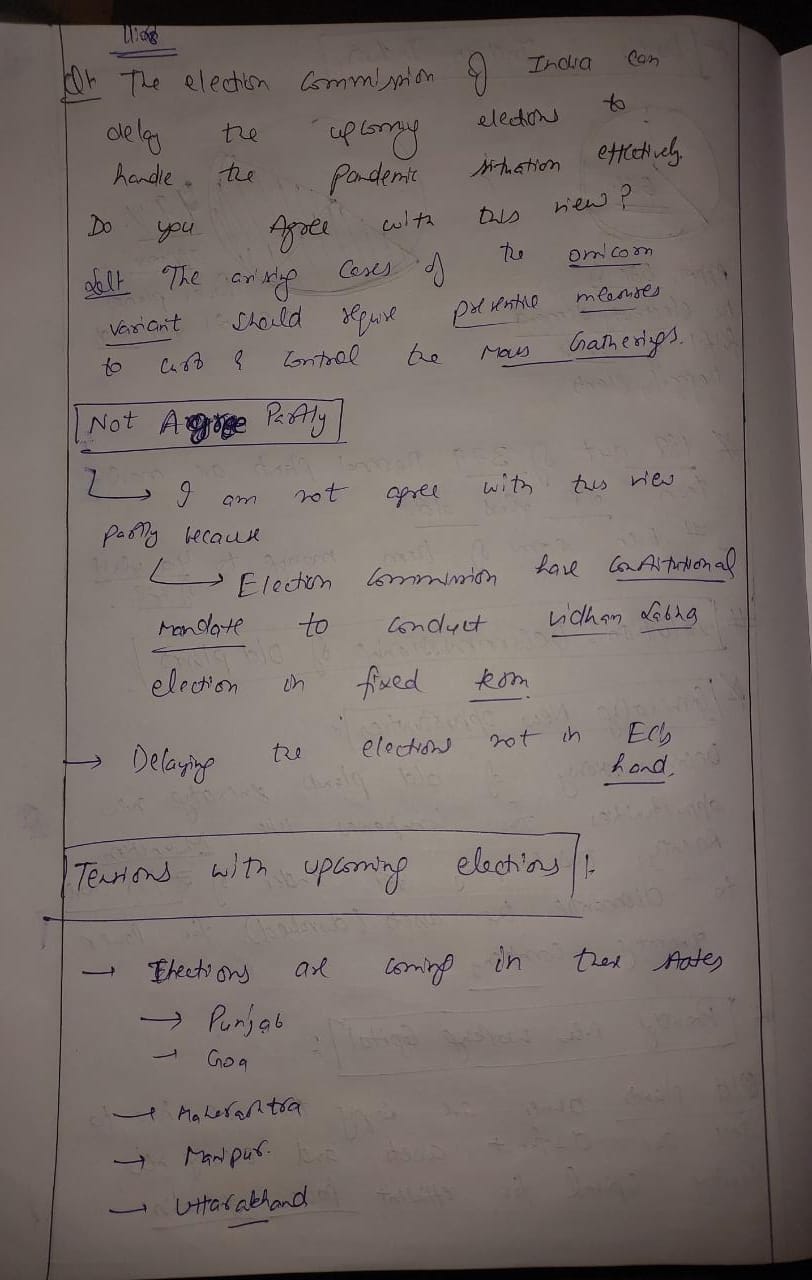 Q1 The election Commission of India can
delay the upcoming elections to
handle the Pandemic situation effectively.
Do you Agree with this view?
Sol1 The arising Cases of the omicorn
variant should require preventive measures
to curb & control the Mass Gatherings.
Not Agree Partly
I am not agree with this view
partly because
Election Commission have constitutional
Mandate to conduct vidhan sabha
election in fixed term.
→ Delaying the elections not in ECIs
hand.
Tensions with upcoming elections :-
→ Elections are coming in these states
→ Punjab
→ Goa
→ Maherashtra
→ Manipur.
→ Uttarakhand